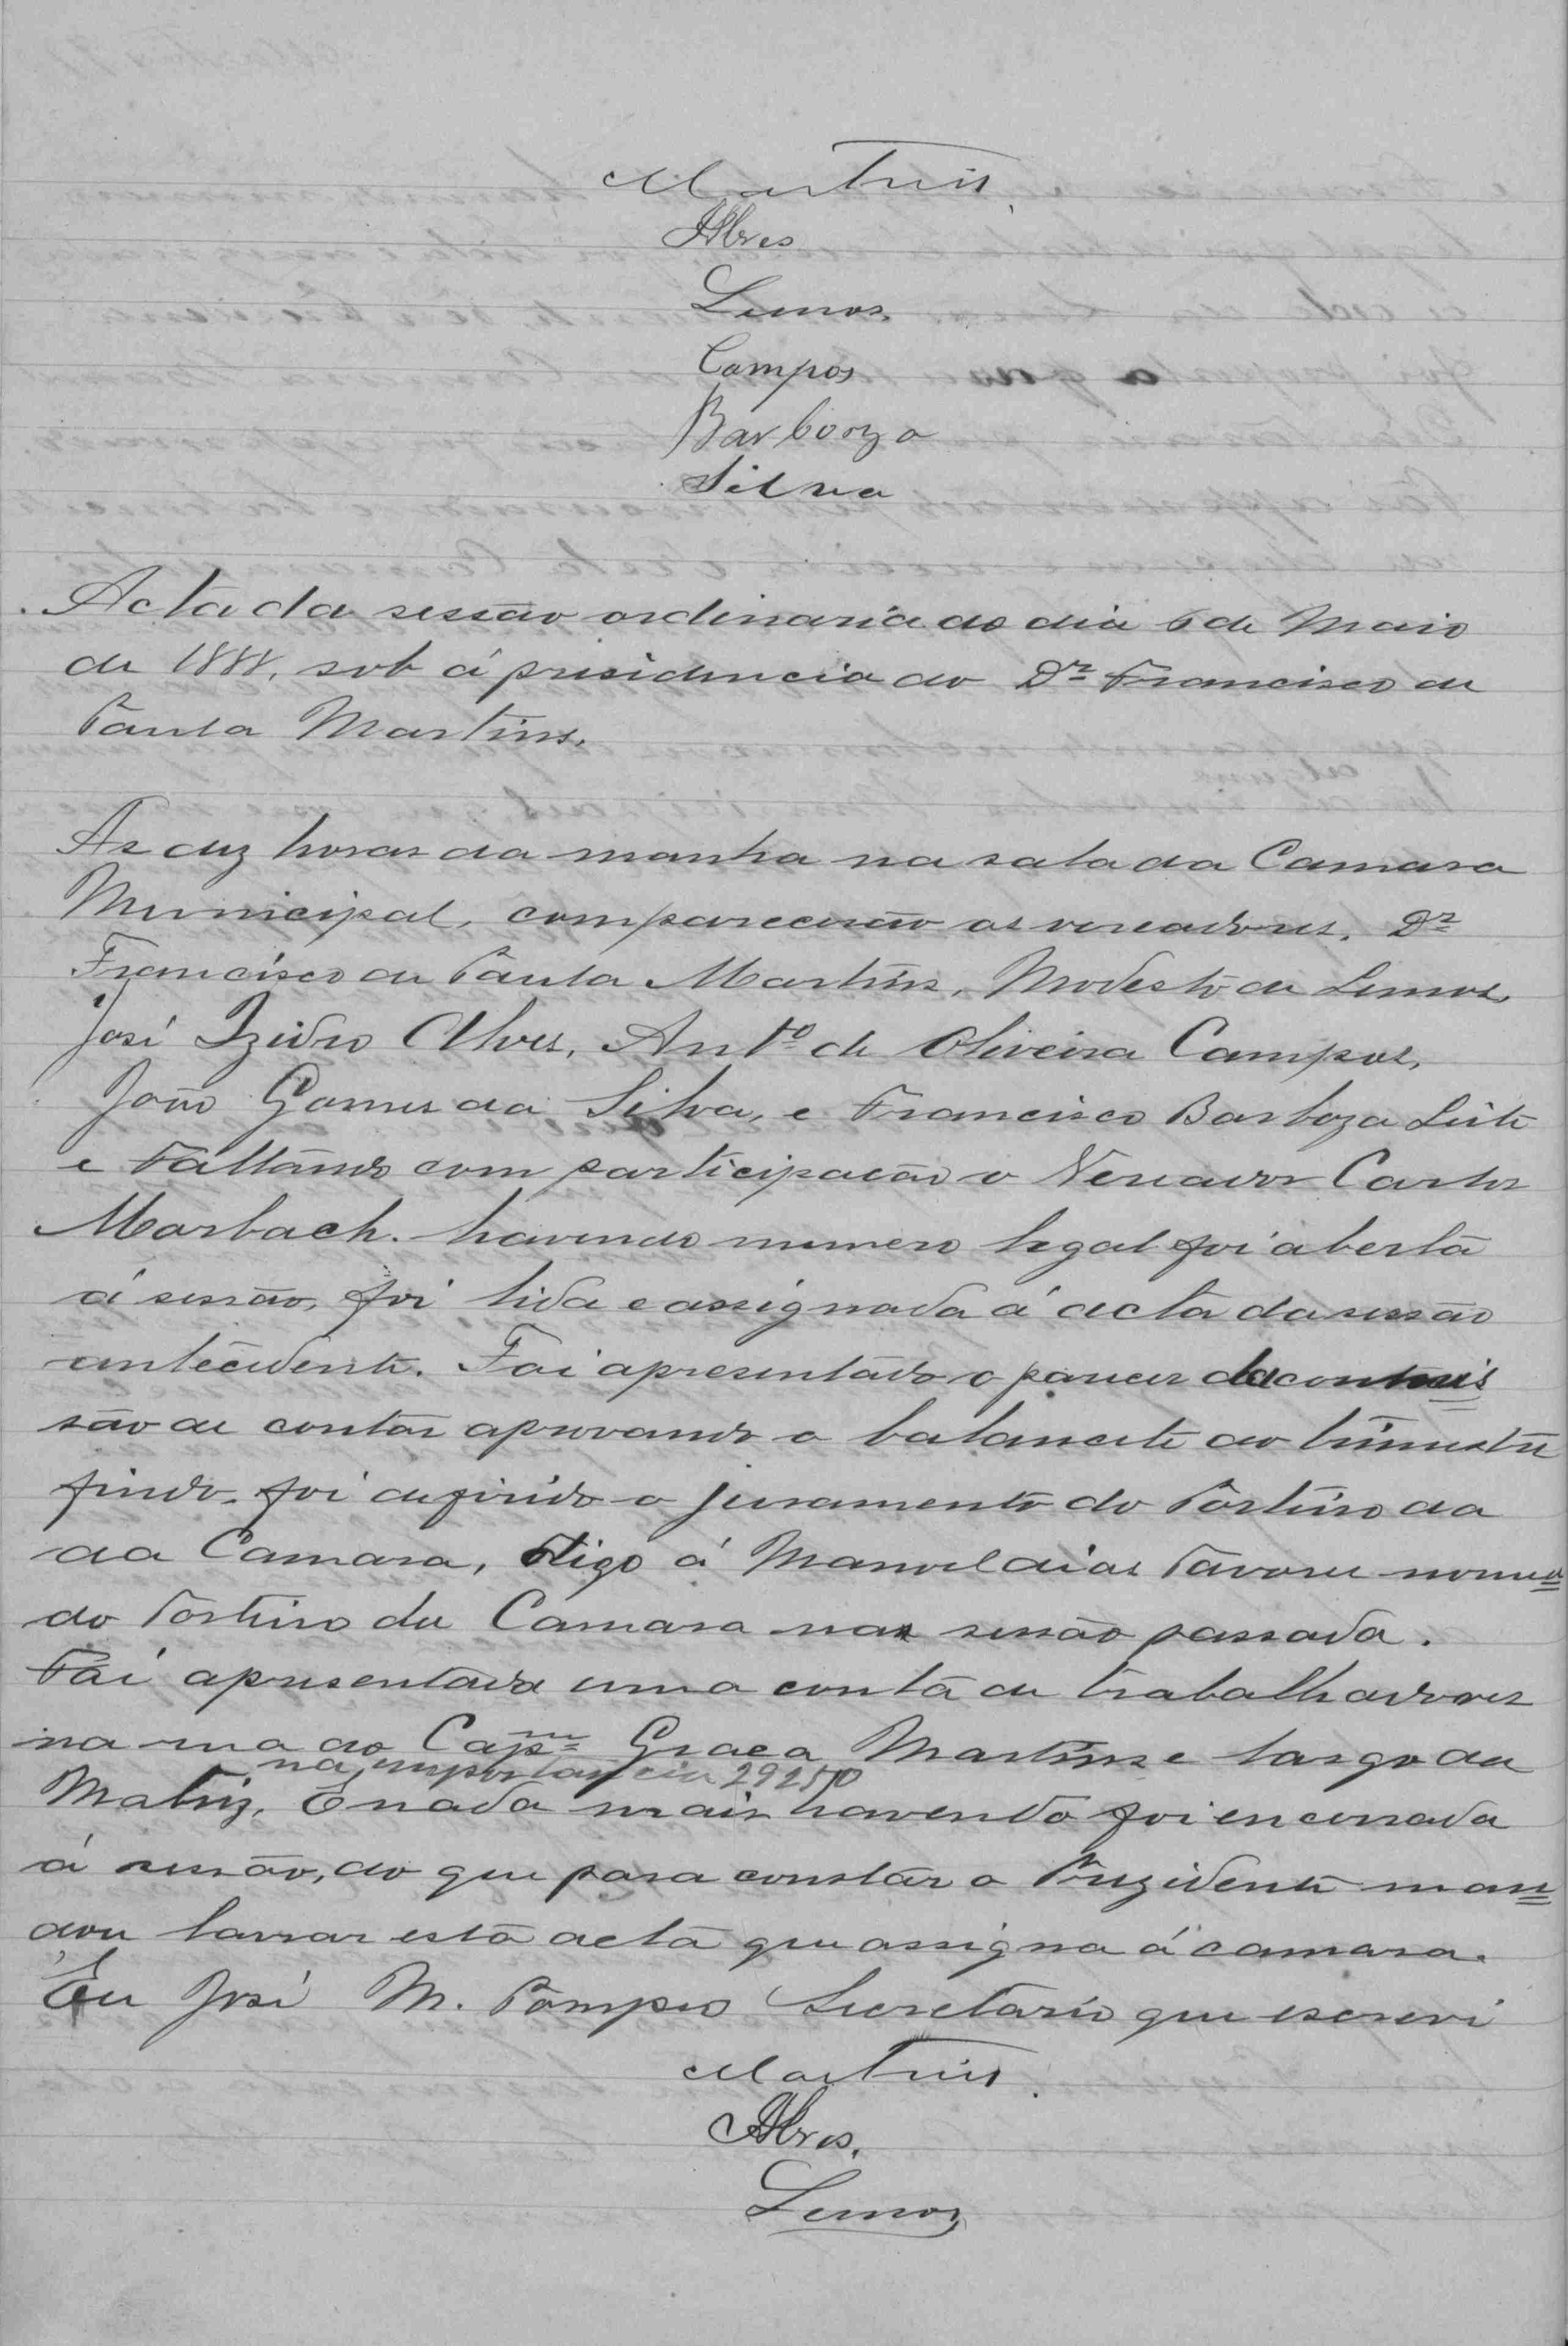 Martins
Alves
Lemos
Campos
Barboza
Silva
Acta da sessão ordinaria do dia 6 de Maio
de 1888, sob á presidencia do Dr Francisco de
Paula Martins.
As dez horas da manha na sala da Camara
Municipal, comparecerão os vereadores, Dr
Francisco de Paula Martins, Modesto de Lemos,
José Izidro Alves, Anto de Oliveira Campos,
João Gomes da Silva, e Francisco Barboza Leite
e Faltando com participacão o Vereador Carlos
Marbach. havendo numero legal foi aberta
á sessão, foi lida e assignada á acta da sessão
antecedente. Foi apresentado o parecer da commis
são de contas aprovando o balancete do trimestre
findo. foi deferido o juramento do Porteiro da
da Camara, digo á Manoel dias Tavares nomea
do Porteiro da Camara na sessão passada.
Foi apresentada uma conta de trabalhadores
na rua do Capm Graça Martins e largo da
na importancia 29250
Matriz, E nada mais havendo foi encerrada
á sessão, do que para constar o Prezidente man
dou lavrar esta acta que assigna á camara.
Eu José M. Pompeo Secretario que escrevi
Martins
Alves.
Lemos